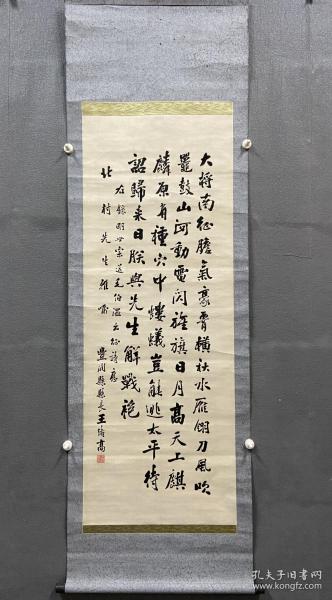 大将南征膽氣豪胥橫秋水雁翎刀風吹
鼉鼓山河動電閃旌旗日月高天上麒
麟原有種穴中螻蟻豈能逃太平待
詔歸來日朕與先生解戰袍
右錄明世宗送毛伯溫出征詩應
北村先生雅屬
豐潤縣縣長王 高
孔夫子旧书网